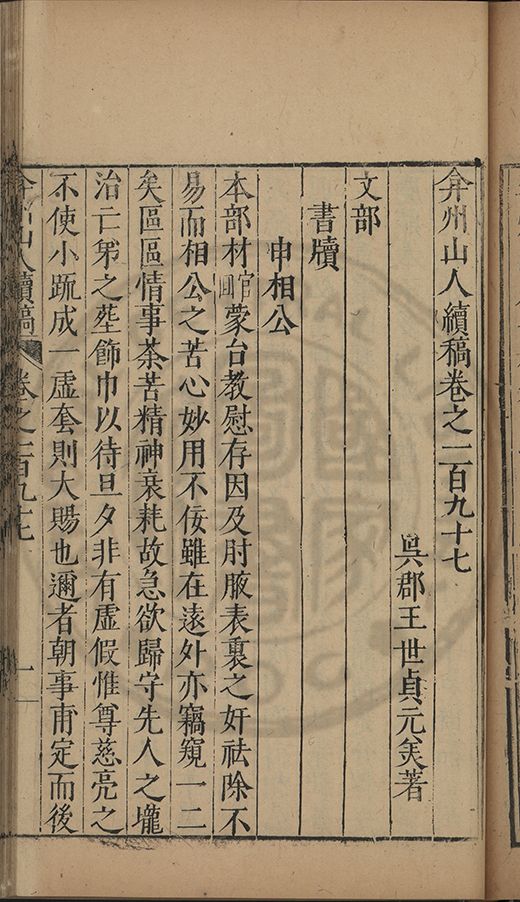 弇州山人續稿卷之一百九十七
吳郡王世貞元美著
文部
書牘
申相公
本部材官回蒙台教慰存因及肘腋表裏之奸祛除不
易而相公之苦心妙用不佞雖在遠外亦竊窺一二
矣區區情事荼苦精神衰耗故急欲歸守先人之壠
治亡弟之塟飾巾以待旦夕非有虛假惟尊慈亮之
不使小疏成一虛套則大賜也邇者朝事甫定而後
弇州山人續稿 卷之一百九十七 一